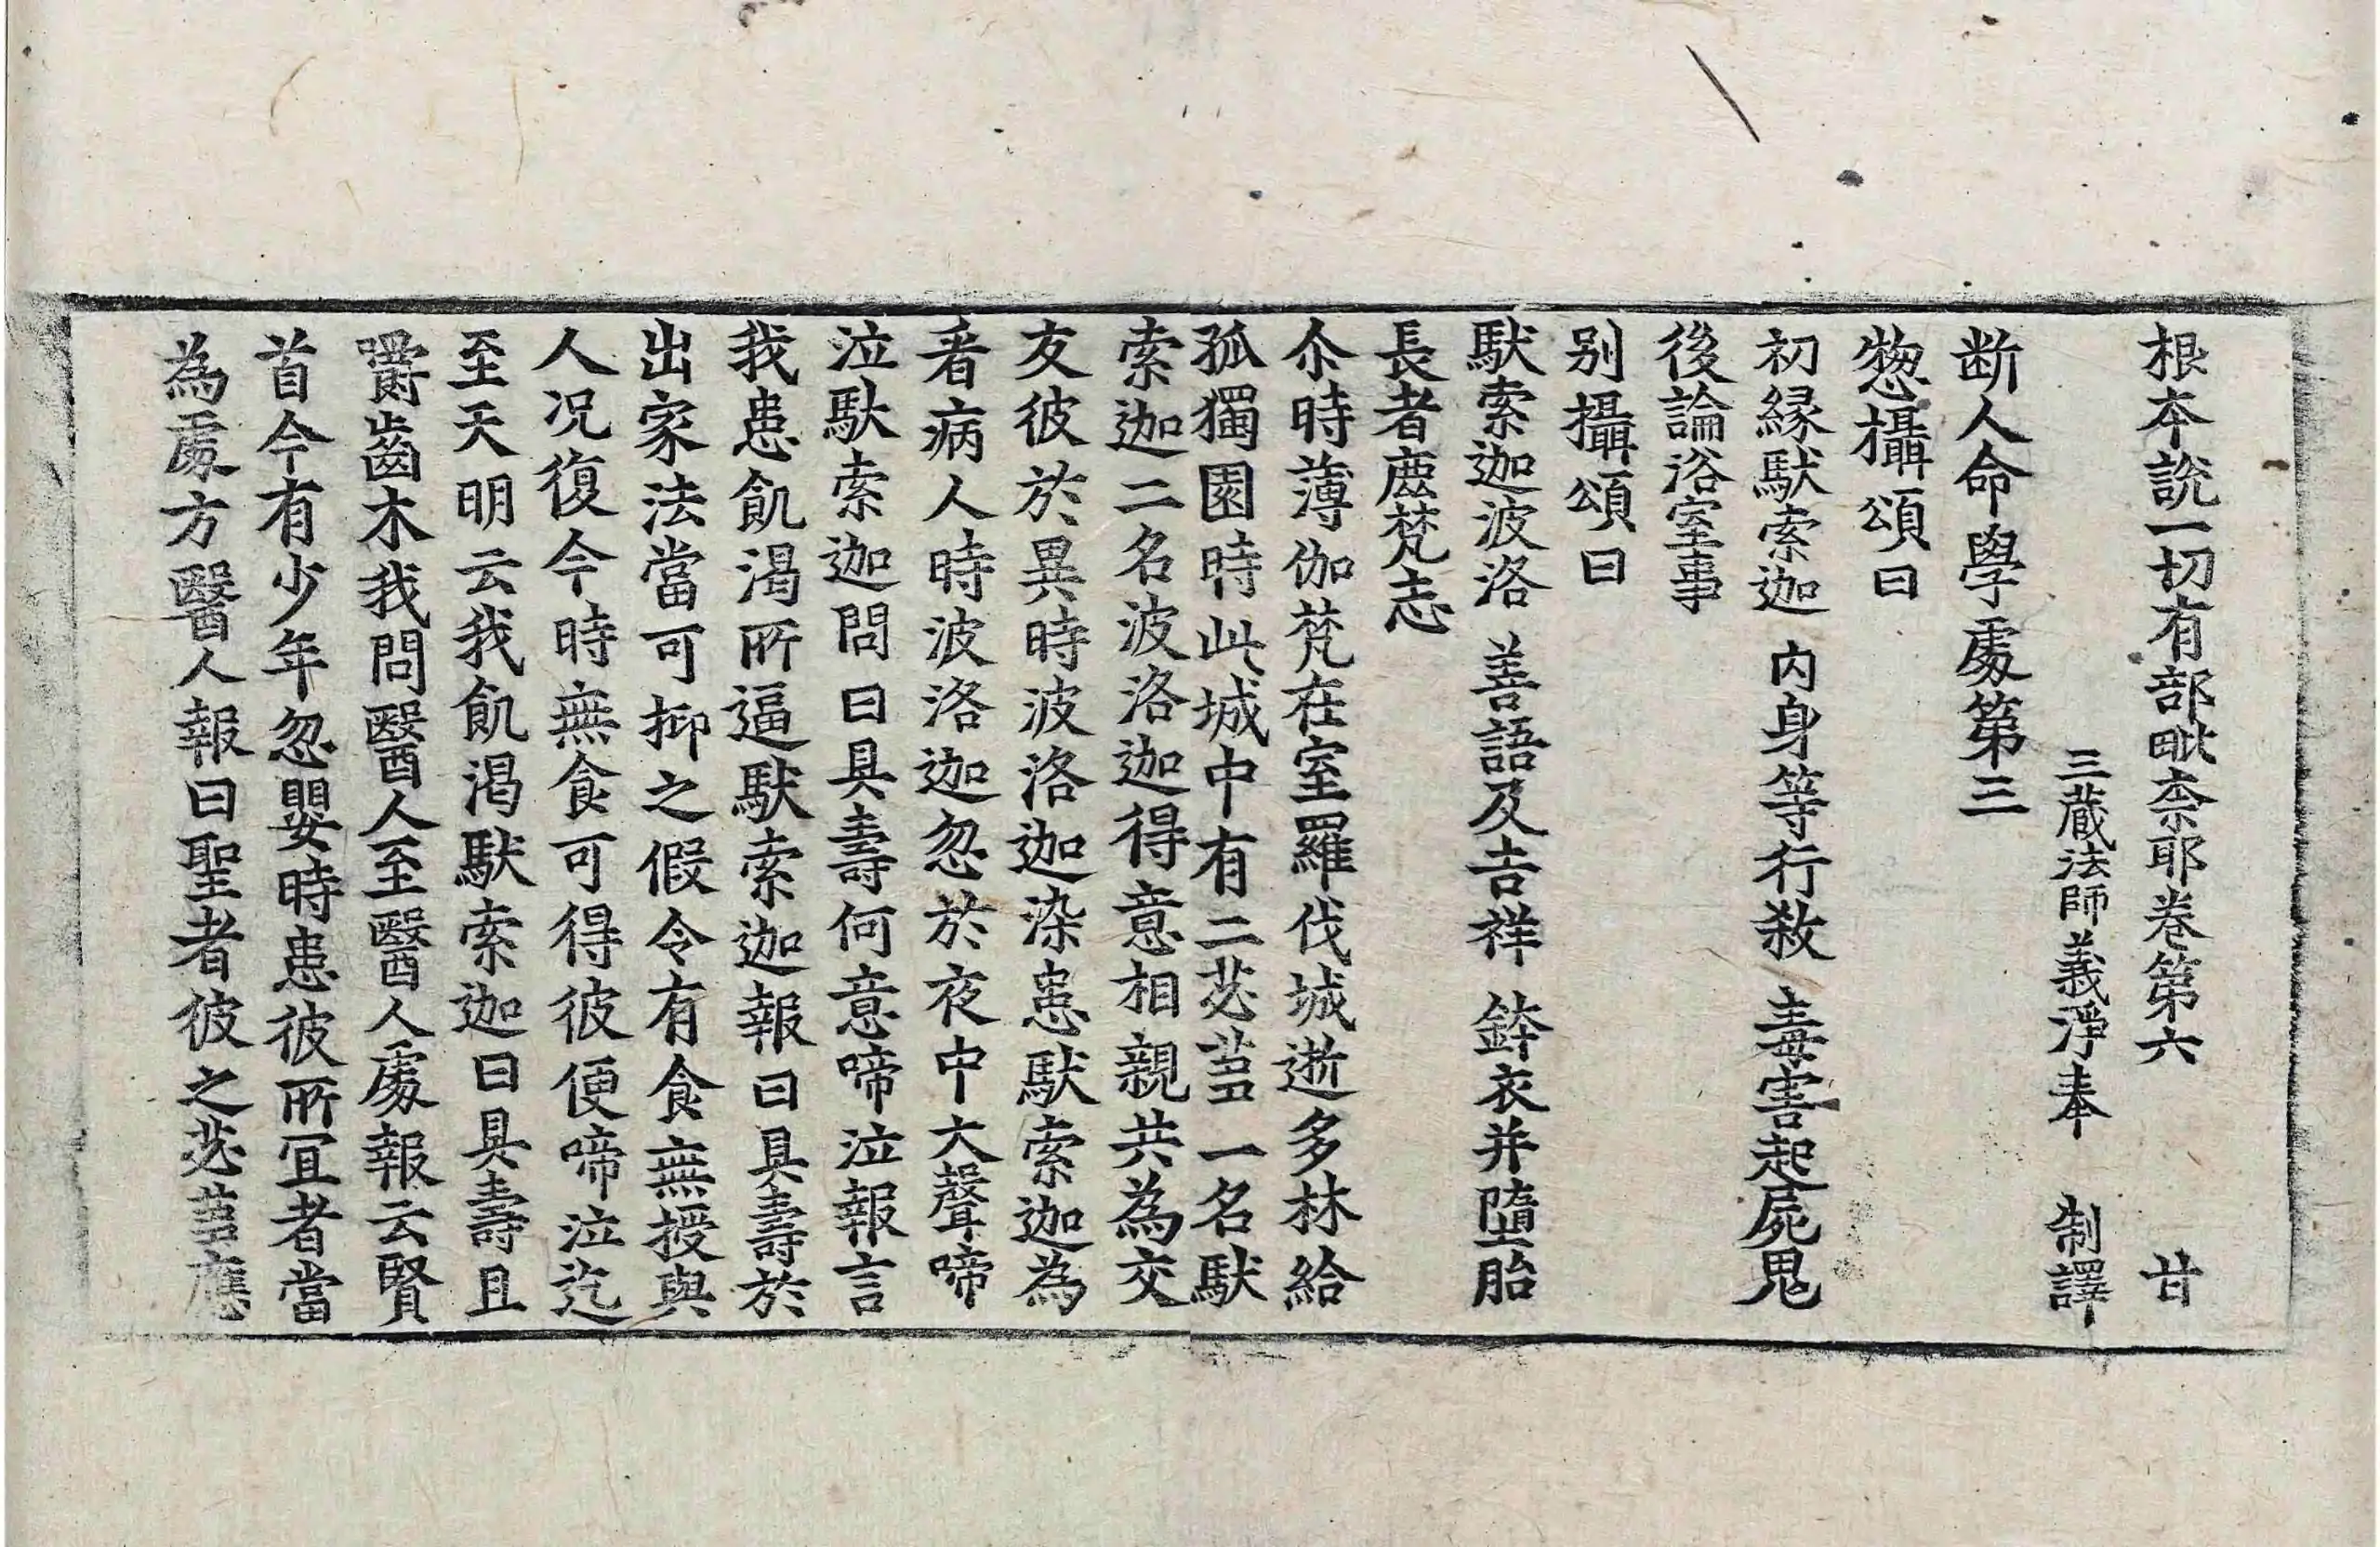 根本說一切有部毗柰耶卷第六　甘
三藏法師義淨奉　制譯
断人命學處第三
惣攝頌曰
初縁䭾索迦　内身等行殺　毒害起屍鬼
後論浴室事
别攝頌曰
䭾索迦波洛　善語及吉祥　鉢衣并墮胎
長者㢆梵志
尒時薄伽梵在室羅伐城逝多林給
孤獨園時此城中有二苾芻一名䭾
索迦二名波洛迦得意相親共為交
友彼於異時波洛迦染患䭾索迦為
看病人時波洛迦忽於夜中大聲啼
泣䭾索迦問曰具壽何意啼泣報言
我患飢渴所逼䭾索迦報曰具壽於
出家法當可抑之假令有食無授與
人况復今時無食可得彼便啼泣迄
至天明云我飢渴䭾索迦曰具壽且
嚼齒木我問醫人至醫人處報云賢
首今有少年忽嬰時患彼所宜者當
為處方醫人報曰聖者彼之苾芻應